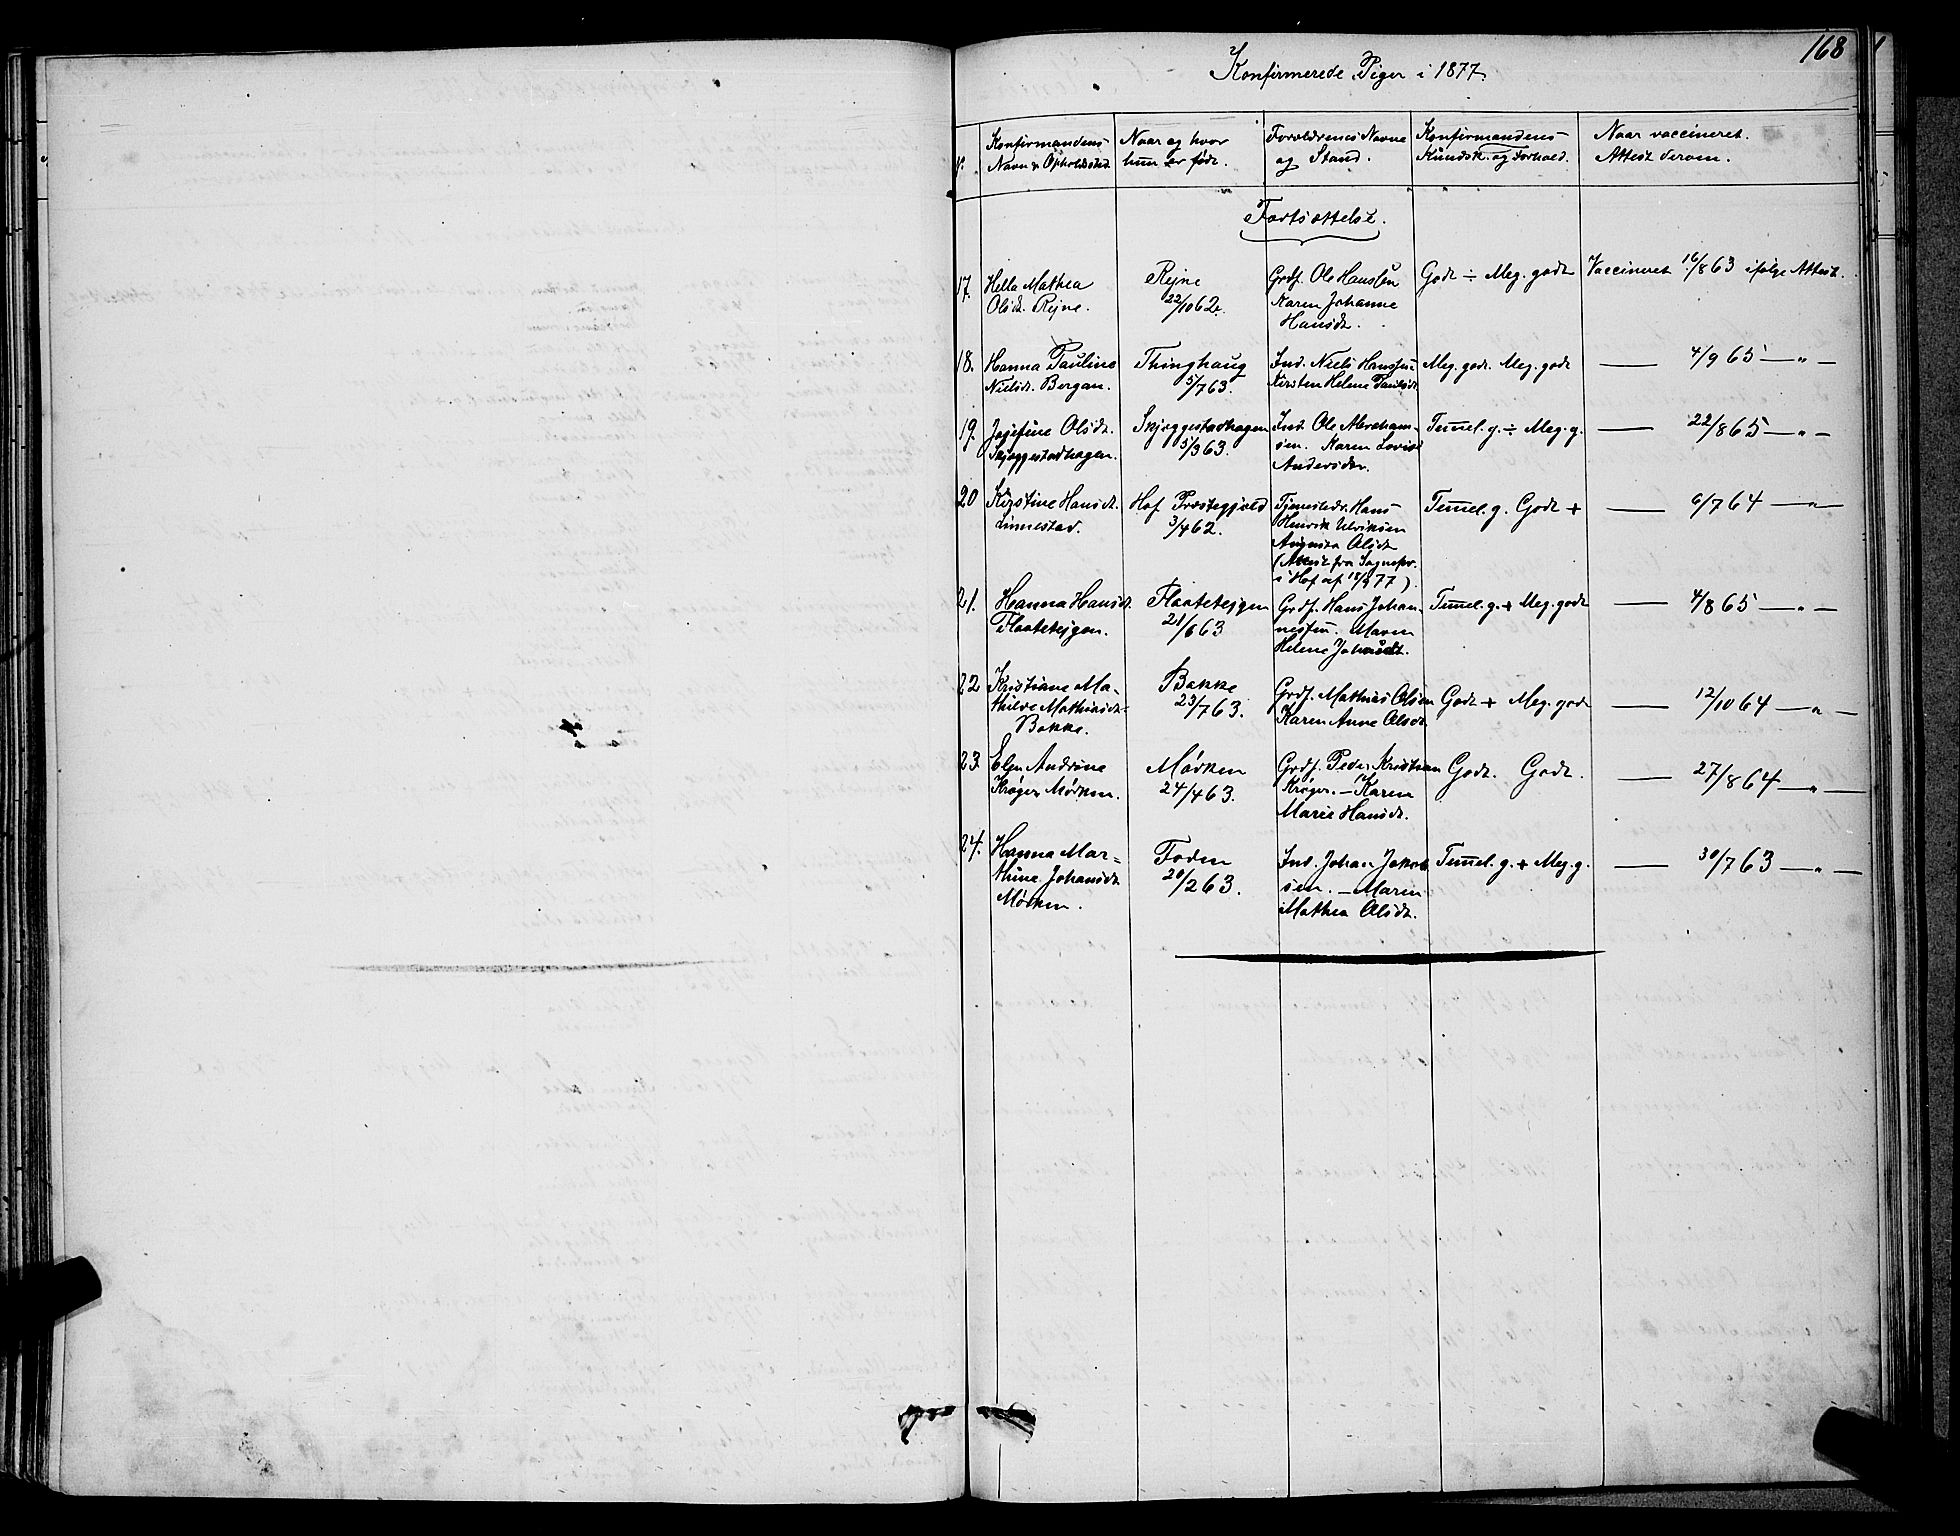 168
Konfirmerede Piger i 1877.
N. Konfirmandens Navn & Opholdssted. Naar og hvor hun er født. Forældrenes Navne og Stand. Konfirmandens Kundsk. og Forhold. Naar vaccineret. Attest derom.
Fortsættelse.
17. Hella Mathea Rejne Grdf. Ole Hanssen Godt ÷ Meg. godt Vaccineret 16/8 63 ifølge Attest.
Olsdt. Rejne. 22/10 62. Karen Johanne
Hansdt.
18. Hanna Pauline Thinghaug Ind. Niels Hanssen Meg. godt. Meg. godt — 4/9 65 — " —
Nielsdt. Bergan. 5/7 63. Kirsten Helene Paulsdt.
19. Josefine Olsdt. Skjeggestadhagen Ind. Ole Abraham- Temel. g. ÷ Meg. g. — 22/8 65 — " —
Skjeggestadhagen. 5/3 63. sen. Karen Lovise
Andersdtr.
20 Kirstine Hansdt. Hof Præstegjæld Tjenestedr. Hans Temel. g. Godt + — 6/7 64 — " —
Linnestad. 3/4 62. Henrik Ulriksen
Augusta Olsdt.
(Attest fra Sognepr.
i Hof af 18/9 77)
21. Hanna Hansdt. Flaatetejgen Grdf. Hans Johan- Temel. g. + Meg. godt — 4/8 65 — " —
Flaatetejgen. 21/6 63 nessen. Maren
Helene Johansdt.
22 Kristiane Ma- Bakke Grdf. Mathias Olsen Godt + Meg. godt — 12/10 64 — " —
thilde Mathiasdt. 23/7 63. Karen Anne Olsdt.
Bakke.
23. Elen Andrine Mørken Grdf. Peder Kristian Godt. Godt. — 27/8 64 — " —
Krøger Mørken. 24/4 63. Krøger. — Karen
Marie Hansdt.
24. Hanna Mar- Foden Ind. Johan Jakob Temel. g. + Meg. g. — 30/7 63 — " —
thine Johansdt. 20/2 63. sen. — Maren
Mørken. Mathea Olsdt.